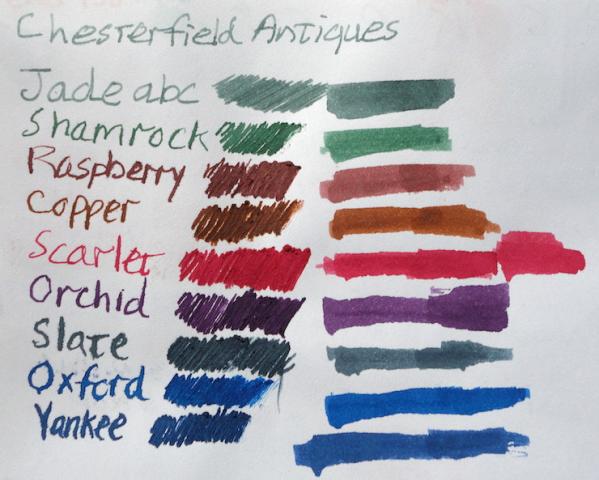 Chesterfield Antiques
Jade abc
Shamrock
Raspberry
Copper
Scarlet
Orchid
Slate
Oxford
Yankee